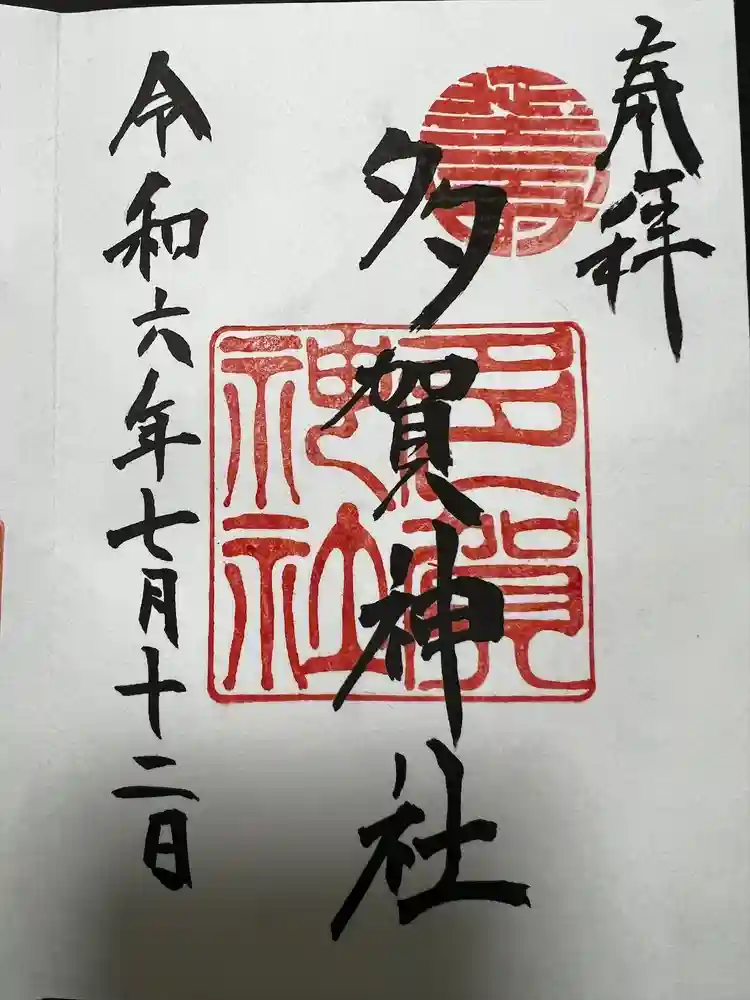 奉拝
多賀神社
多賀神社
令和六年七月十二日